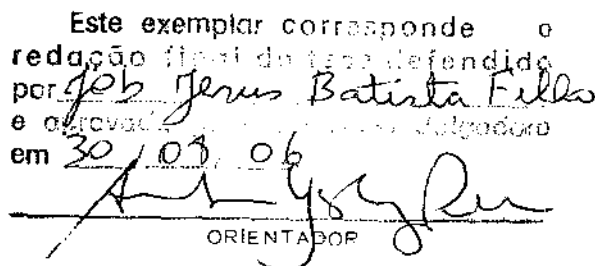 Este exemplar corresponde o
redação final da tese defendida
por Job Jesus Batista Filho
e aprovada Julgadora
em 30 / 03 / 06
ORIENTADOR